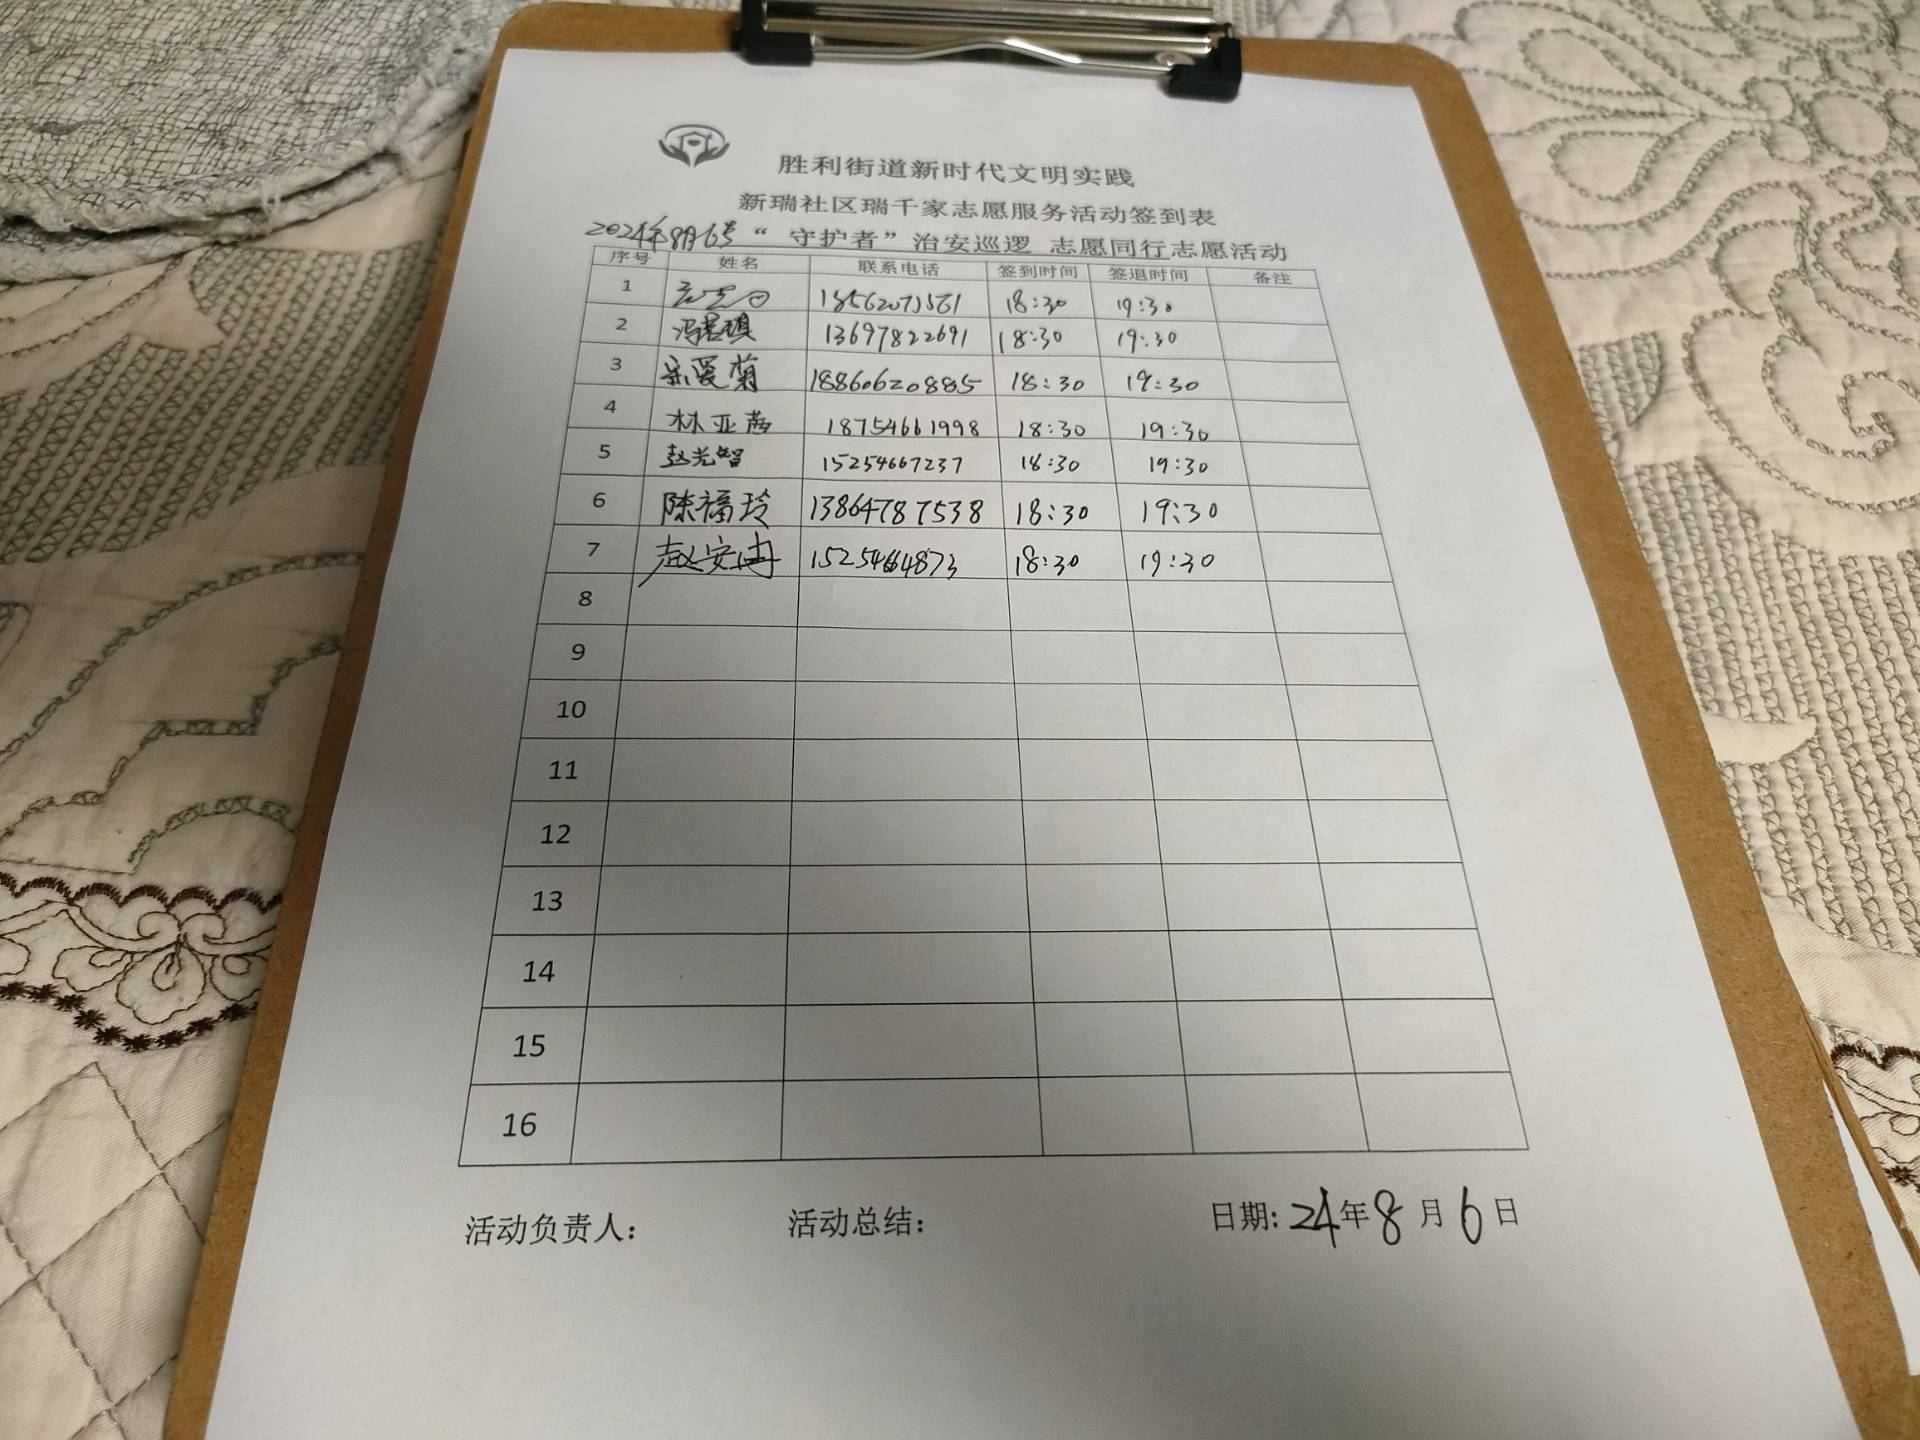 胜利街道新时代文明实践
新瑞社区瑞千家志愿服务活动签到表
2024年8月6号“ 守护者”治安巡逻 志愿同行志愿活动
序号 姓名 联系电话 签到时间 签退时间 备注
1 18:30 19:30
2 13697822691 18:30 19:30
3 宋爱菊 18860620885 18:30 19:30
4 林亚茜 18754661998 18:30 19:30
5 赵光智 15254667237 18:30 19:30
6 陈福玲 13864787538 18:30 19:30
7 赵安冉 15254664873 18:30 19:30
8
9
10
11
12
13
14
15
16
活动负责人： 活动总结： 日期: 24年8月6日